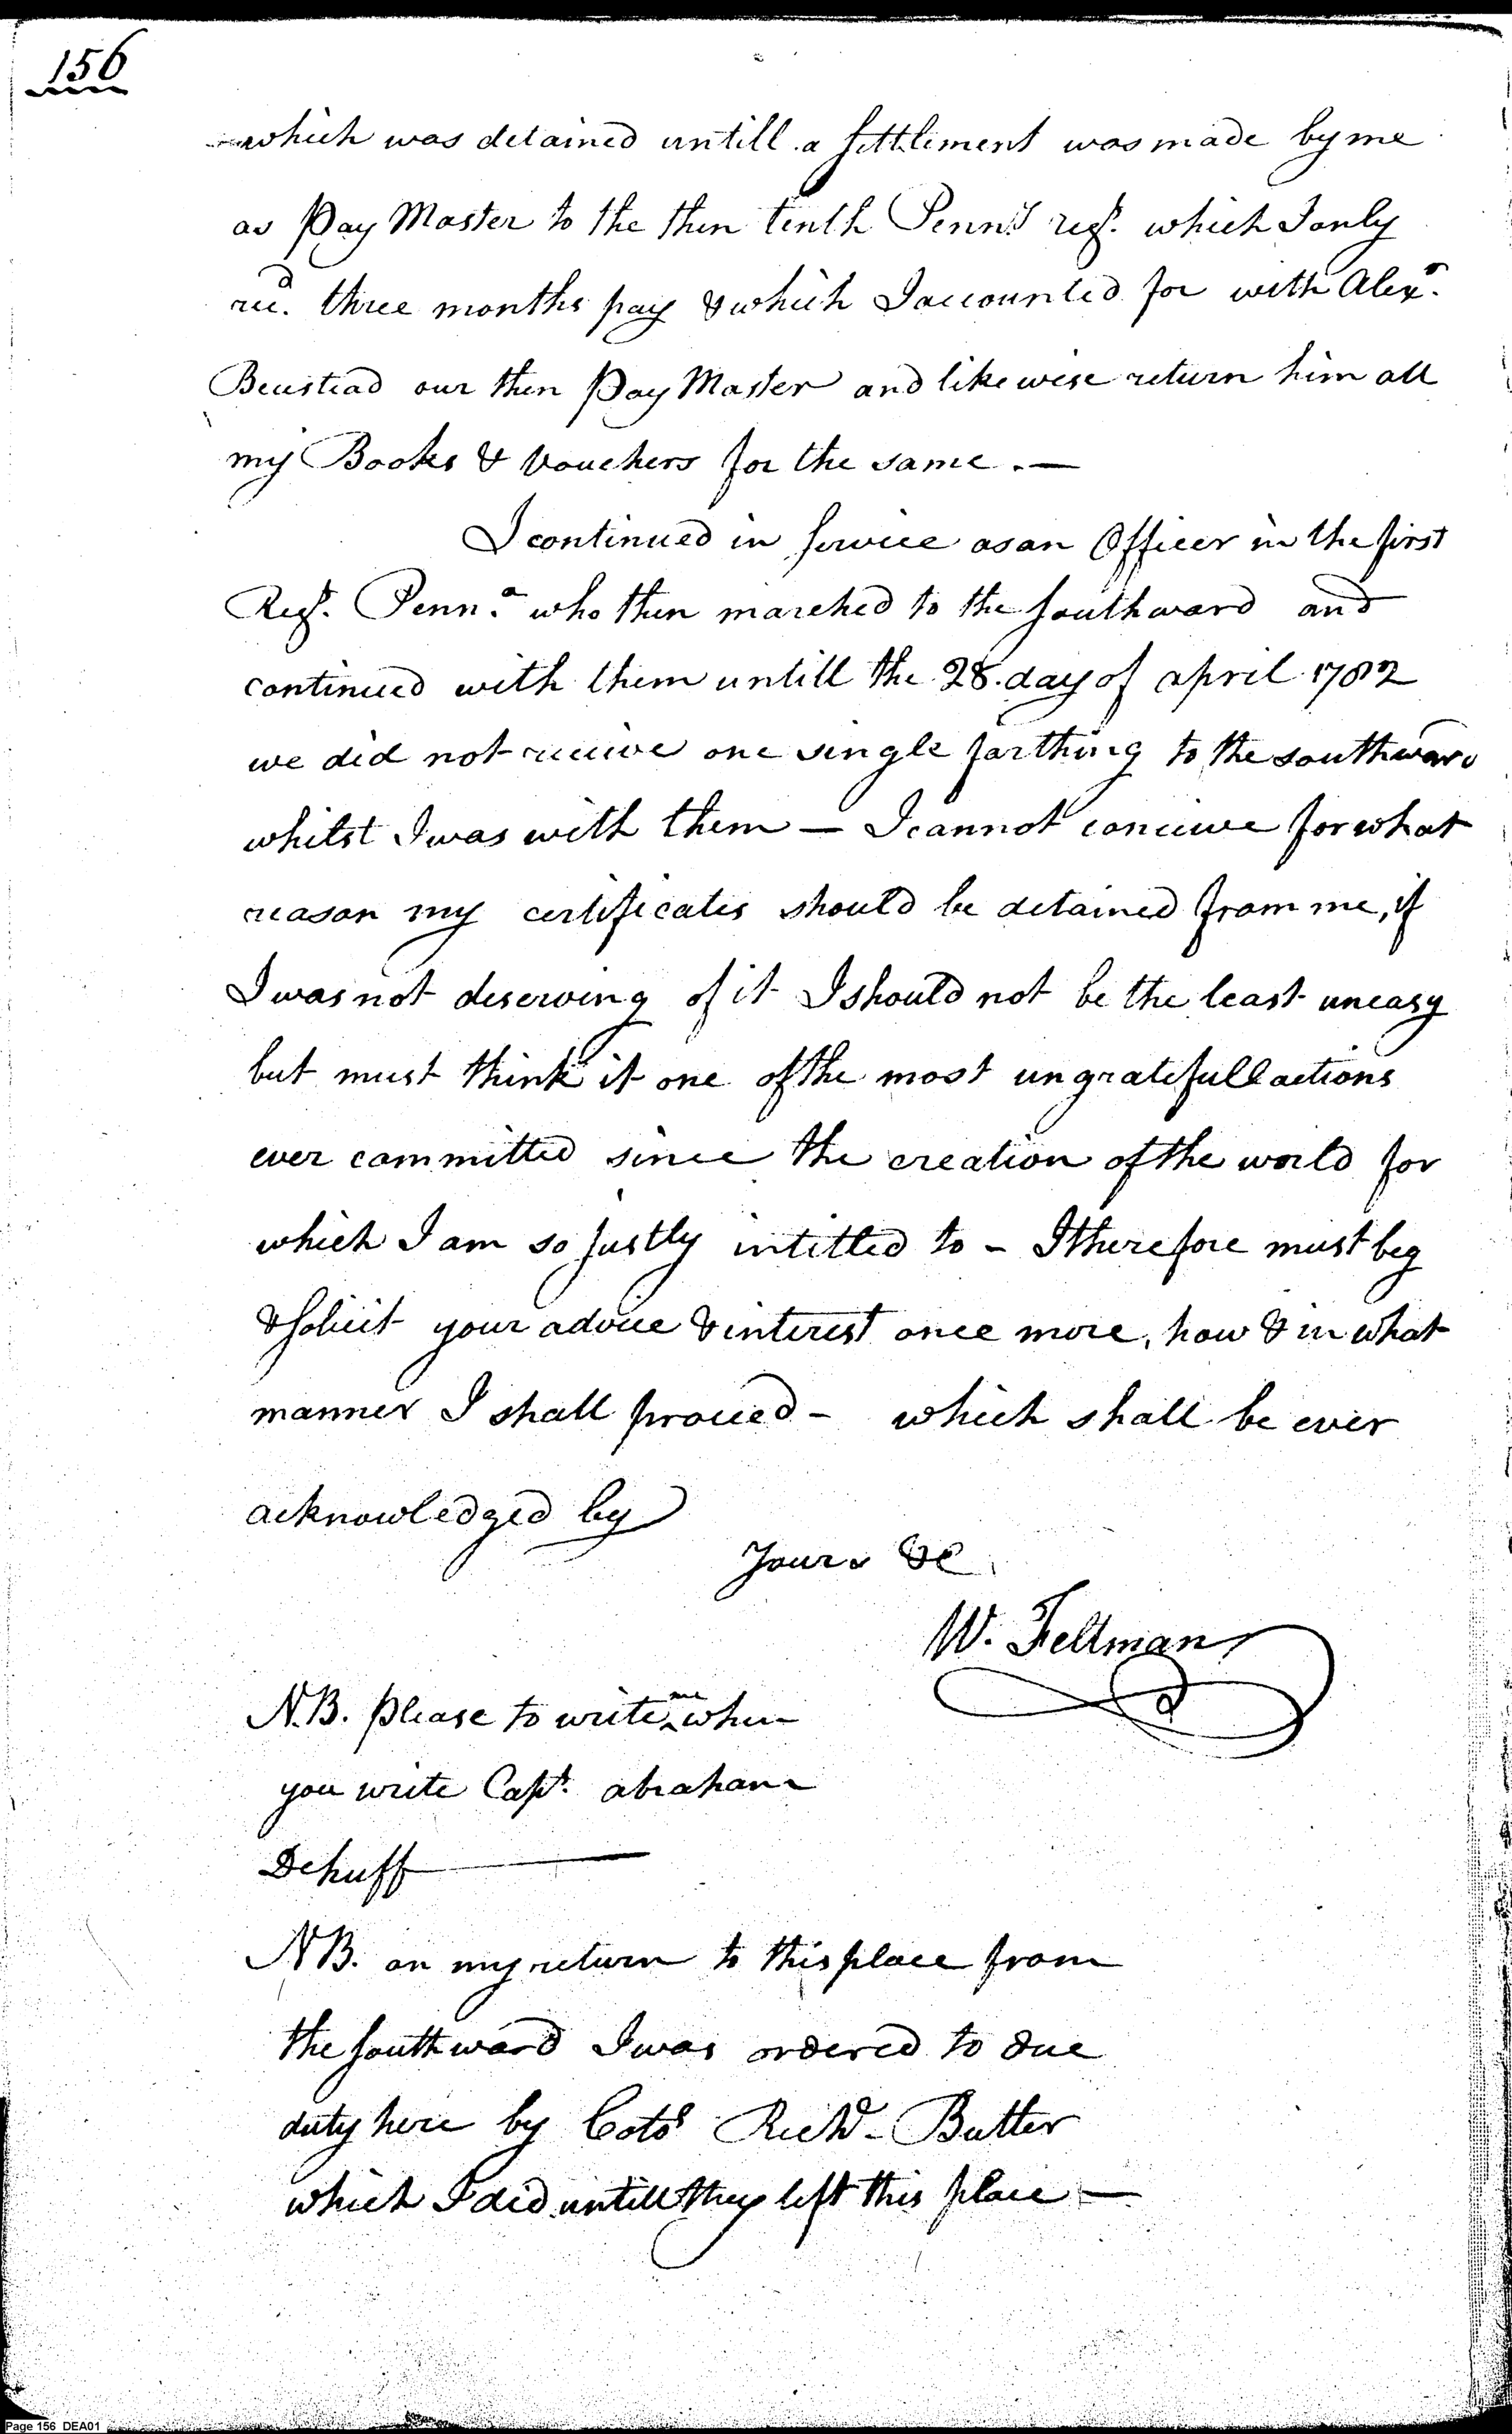 156
which was detained untill a Settlement was made by me
as Pay Master to the then tenth Penn.ª regt. which I only
rec.d three months pay & which I accounted for with Alex.r
Beustead our then Pay Master and likewise return him all
my Books & Vouchers for the same. —
I continued in Service as an Officer in the first
Regt. Penn.a who then marched to the Southward and
continued with them untill the 28. day of april 1782
we did not receive one single farthing to the southward
whilst I was with them — I cannot conceive for what
reason my certificates should be detained from me, if
I was not deserving of it I should not be the least uneasy
but must think it one of the most ungratefull actions
ever committed since the creation of the world for
which I am so justly intitled to - I therefore must beg
& Solicit your advice & interest once more, how & in what
manner I shall proceed - which shall be ever
acknowledged by
Yours &c
W. Feltman
N.B. please to write me when
you write Capt. abraham
Dehuff —
NB. on my return to this place from
the Southward I was ordered to due
duty here by Colo Richd - Butler
which I did untill they left this place —
Page 156 DEA01